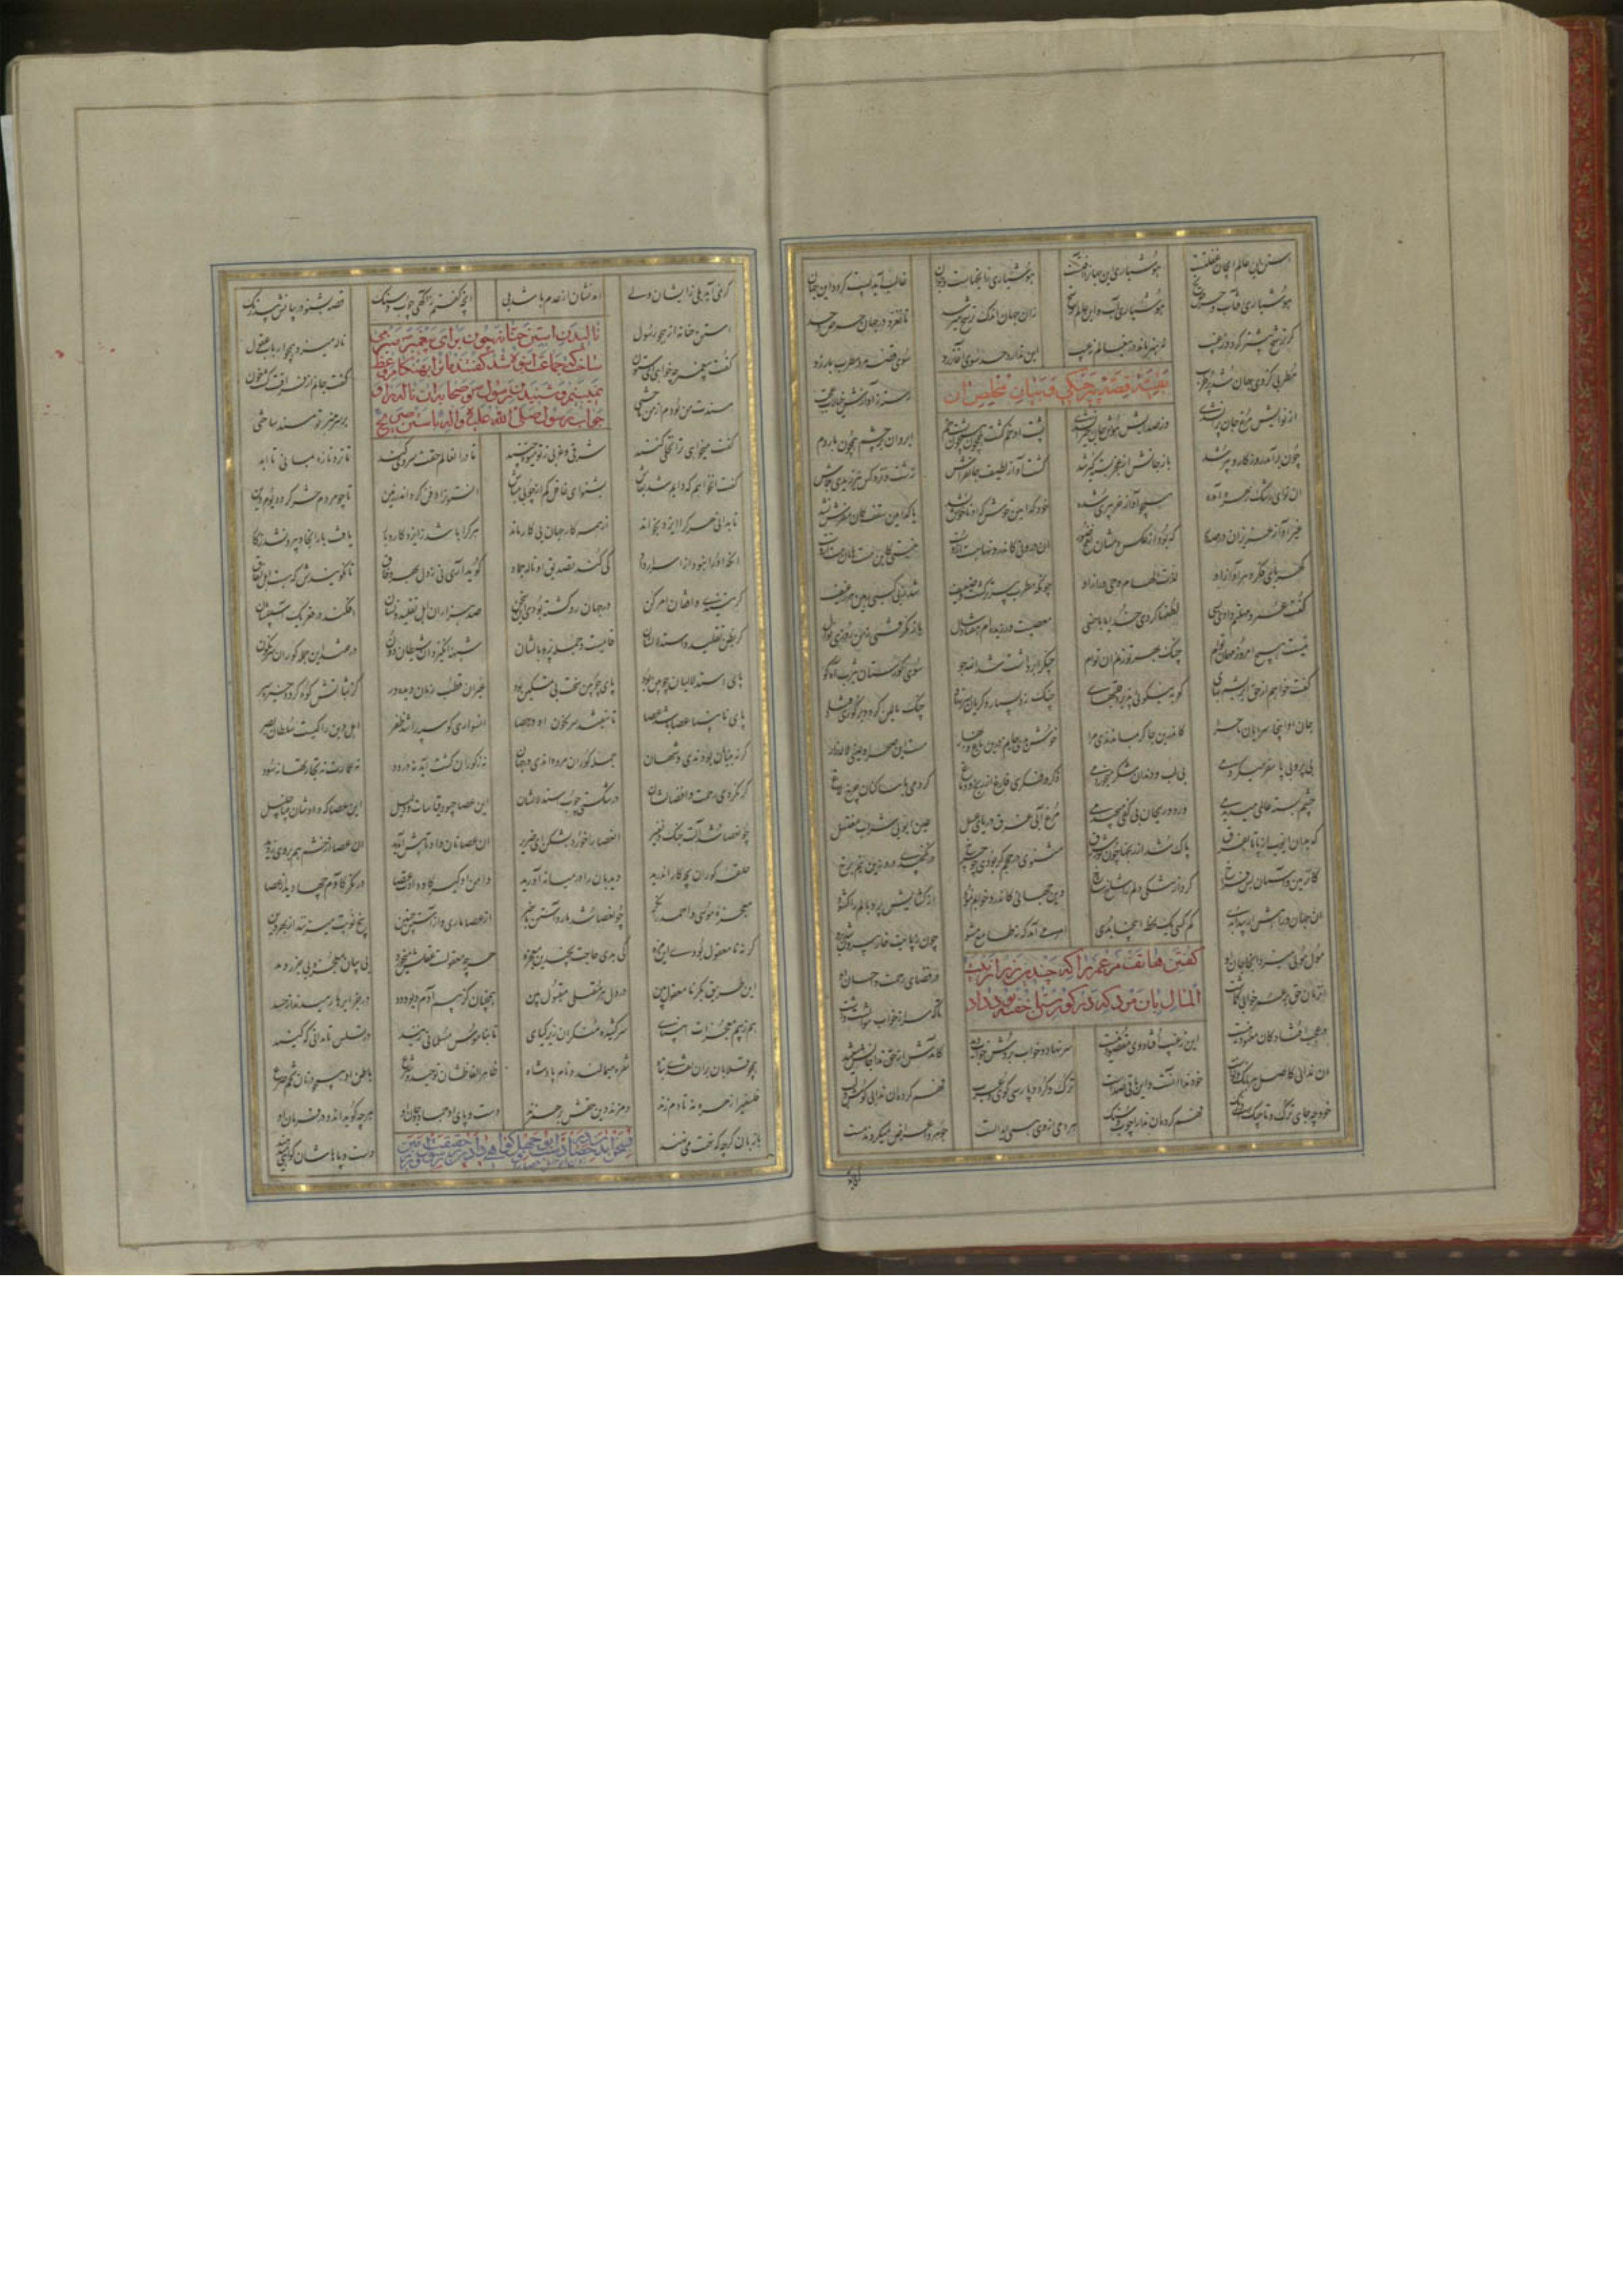 استن این عالم ای جان غفلتست هوشیاری این جهان را آفتست هوشیاری زان جهانست و چو آن غالب آید پست گردد این جهان
هوشیاری آفتاب و حرص یخ هوشیاری آب و این عالم وسخ زان جهان اندک ترشح میرسد تا نغرد در جهان حرص و حسد
گر ترشح بیشتر گردد ز غیب نه هنر ماند درین عالم نه عیب این ندارد حد سوی آغاز رو سوی قصه مرد مطرب باز رو
بقیه قصه پیر چنگی و بیان مخلص آن
مطربی کز وی جهان شد پر طرب رسته ز آوازش خیالات عجب
از نوایش مرغ جان پران شدی وز صدایش هوش جان حیران شدی پشت او خم گشت همچون پشت خم ابروان بر چشم همچون پاردم
چون برآمد روزگار و پیر شد باز جانش از عجز پشه گیر شد گشت آواز لطیف جانفزاش زشت و نزد کس نیرزیدی بلاش
آن نوای رشک زهره آمده همچو آواز خر پیری شده خود کدامین خوش که او ناخوش نشد یا کدامین سقف کان مفرش نشد
غیر آواز عزیزان در صدور که بود از عکس دمشان نفخ صور اندرونی کاندرونها مست ازوست نیستی کاین هستهامان هست ازوست
کهربای فکر و هر آواز او لذت الهام و وحی و راز او چونکه مطرب پیرتر گشت و ضعیف شد ز بی کسبی رهین یک رغیف
گفت عمر و مهلتم دادی بسی لطفها کردی خدایا با خسی معصیت ورزیده ام هفتاد سال باز نگرفتی ز من روزی نوال
نیست کسب امروز مهمان توام چنگ بهر تو زنم آن توام چنگ را برداشت شد الله جو سوی گورستان یثرب آه گو
گفت خواهم از حق ابریشم بها کو بنیکویی پذیرد قلبها چنگ زد بسیار و گریان سر نهاد چنگ بالین کرد و بر گوری فتاد
جان او آنجا سرایان ماجرا کاندرین جا گر بماندندی مرا خوش بدی جانم درین باغ و بهار مست این صحرا و غیبی لاله زار
بی پر و بی پا سفر میکردمی بی لب و دندان شکر میخوردمی ذکر و فکری فارغ از رنج دماغ کردمی با ساکنان چرخ لاغ
چشم بسته عالمی میدیدمی ورد و ریحان بی کفی میچیدمی مرغ آبی غرق دریای عسل عین ایوبی شراب و مغتسل
که بدان ایوب از پا تا بفرق پاک شد از رنجها چون نور شرق مثنوی در حجم گر بودی چو چرخ درنگنجیدی درو زین نیم برخ
کان زمین و آسمان بس فراخ کرد از تنگی دلم را شاخ شاخ وین جهانی کاندرو خوابم نمود از گشایش پر و بالم را گشود
آن جهان و راهش ار پیدا بدی کم کسی یک لحظه اینجا بدی امر می آمد که نه طامع مشو چون ز پایت خار بیرون شد برو
مول مولی میزد آنجا جان او در فضای رحمت و احسان او
گفتن هاتف مر عمر را که چندین زر از بیت
المال بآن مرد ده که در گورستان خفته بود
آن زمان حق بر عمر خوابی گماشت تا که خویش از خواب نتوانست داشت
در عجب افتاد کان معهود نیست این ز غیب افتاد و بی مقصود نیست سر نهاد و خواب بردش خواب دید کامدش از حق ندا جانش شنید
آن ندایی کاصل هر بانگ و نواست خود ندا آنست و این باقی صداست ترک و کرد و پارسی گوی و عرب فهم کرده آن ندا بی گوش و لب
خود چه جای ترک و تاجیکست و زنگ فهم کرده آن ندا را چوب و سنگ هر دمی از وی همی آید الست جوهر و اعراض میگردند هست
گر نمی آید بلی زایشان ولی آمدنشان از عدم باشد بلی آنچه گفتم ز آگهی چوب و سنگ قصه بشنو در بیانش بی درنگ
نالیدن استن حنانه چون برای پیغمبر منبری
ساختند که جماعت انبوه شد گفتند ما روی ترا بهنگام وعظ
نمیبینیم و شنیدن رسول و صحابه آن ناله را و
جواب رسول صلی الله علیه و آله با ستن صریح
استن حنانه از هجر رسول ناله میزد همچو ارباب عقول
گفت پیغمبر چه خواهی ای ستون گفت جانم از فراقت گشت خون
مسندت من بودم از من تاختی بر سر منبر تو مسند ساختی
گفت میخواهی ترا نخلی کنند شرقی و غربی ز تو میوه چنند یا در آن عالم حقت سروی کند تا تر و تازه بمانی تا ابد
گفت آن خواهم که دایم شد بقاش بشنو ای غافل کم از چوبی مباش آن ستون را دفن کرد اندر زمین تا چو مردم حشر گردد یوم دین
تا بدانی هر که را ایزد بخواند از همه کار جهان بی کار ماند هر که را باشد ز ایزد کار و بار یافت بار آنجا و بیرون شد ز کار
آنکه او را نبود از اسرار داد کی کند تصدیق او ناله جماد گوید آری نی ز دل بهر وفاق تا نگویندش که هست اهل نفاق
گر نیندی واقفان امر کن در جهان رد گشته بودی این سخن صد هزاران اهل تقلید و نشان افکند در قعر یک آسیبشان
گر بظن تقلید و استدلالشان قایمست و جمله پر و بالشان شبهه انگیزد آن شیطان دون در فتند این جمله کوران سرنگون
پای استدلالیان چوبین بود پای چوبین سخت بی تمکین بود غیر آن قطب زمان دیده ور کز ثباتش کوه گردد خیره سر
پای نابینا عصا باشد عصا تا نیفتد سرنگون او بر حصا آن سواری کو سپه را شد ظفر اهل دین را کیست سلطان بصر
گر نه بینایان بودندی و شهان جمله کوران مرده اندی در جهان نه ز کوران کشت آید نه درود نه عمارت نه تجارتها نه سود
گر نکردی رحمت و افضالشان در شکستی چوب استدلالشان این عصا چبود قیاسات و دلیل این عصا که دادشان بینا جلیل
چون عصا شد آلت جنگ و نفیر آن عصا را خرد بشکن ای ضریر آن عصاتان داد تا پیش آمدید آن عصا از خشم هم بر وی زدید
حلقه کوران بچه کار اندرید دیدبان را در میانه آورید دامن او گیر کو دادت عصا درنگر کادم چها دید از عصا
معجزه موسی و احمد را نگر چون عصا شد مار و استن باخبر از عصا ماری و از استن حنین پنج نوبت میزنند از بهر دین
گر نه نامعقول بودی این مزه کی بدی حاجت بچندین معجزه هر چه معقولست عقلش میخورد بی بیان معجزه بی جر و مد
این طریق بکر نامعقول بین در دل هر مقبلی مقبول بین همچنان کز بیم آدم دیو و دد در جزایر رمیدند از حسد
هم ز بیم معجزات انبیا سر کشیده منکران زیر گیا تا بناموس مسلمانی زیند در تسلس تا ندانی که کیند
همچو قلابان بر آن نقد تباه نقره میمالند و نام پادشاه ظاهر الفاظشان توحید و شرع باطن او همچو در نان تخم صرع
فلسفی را زهره نه تا دم زند دم زند دین حقش بر هم زند دست و پای او جماد و جان او هر چه گوید آن دو در فرمان او
با زبان گرچه که تهمت می نهند دست و پاهاشان گواهی میدهند